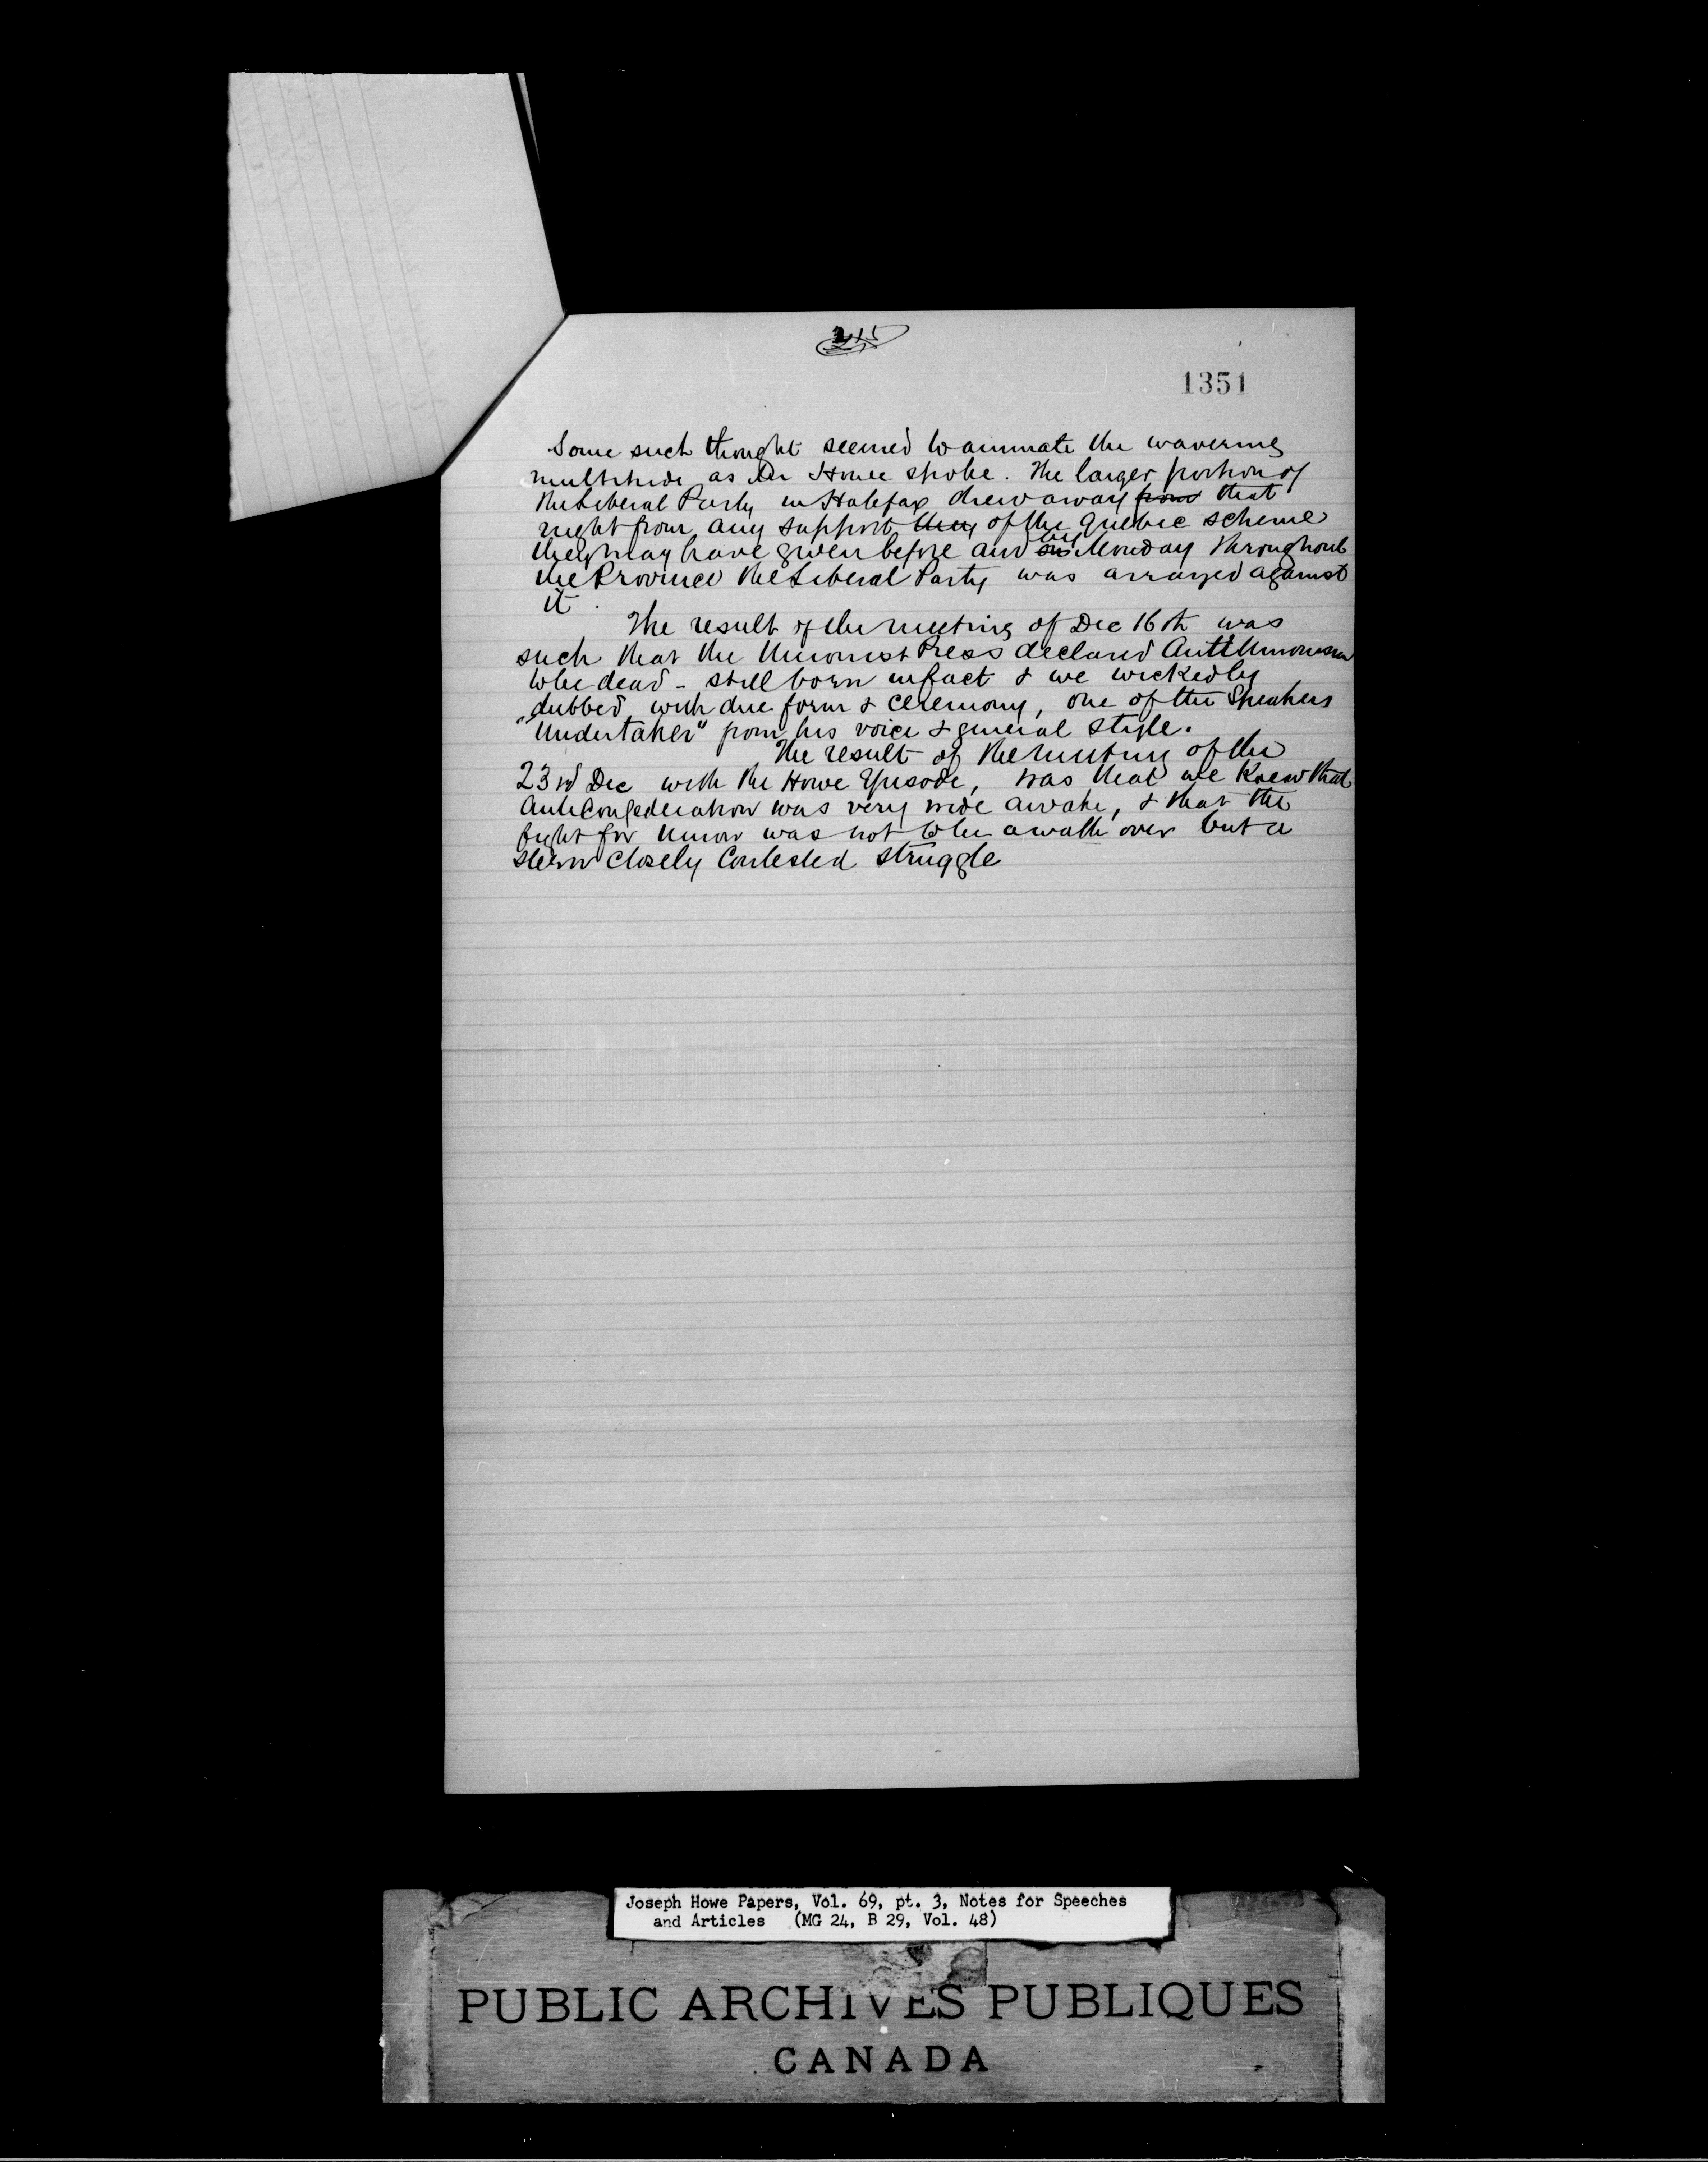 215
1351
Some such thought seemed to animate the wavering
multitude as Mr Howe spoke. The larger portion of
the Liberal Party in Halifax drew away from that
night from any support they of the Quebec scheme
they may have given before and on by Monday throughout
the Province the Liberal Party was arrayed against
it.
The result of the meeting of Dec 16th was
such that the Unionist Press declared AntiUnionism
to be dead - still born in fact & we wickedly
dubbed with due form & ceremony, one of the Speakers
"Undertaker" from his voice & general style.
The result of the meeting of the
23rd Dec with the Howe Episode, was that we knew that
AntiConfederation was very wide awake, & that the
fight for Union was not to be a walk over but a
stern closely contested struggle
Joseph Howe Papers, Vol. 69, pt. 3, Notes for Speeches
and Articles (MG 24, B 29, Vol. 48)
PUBLIC ARCHIVES PUBLIQUES
CANADA